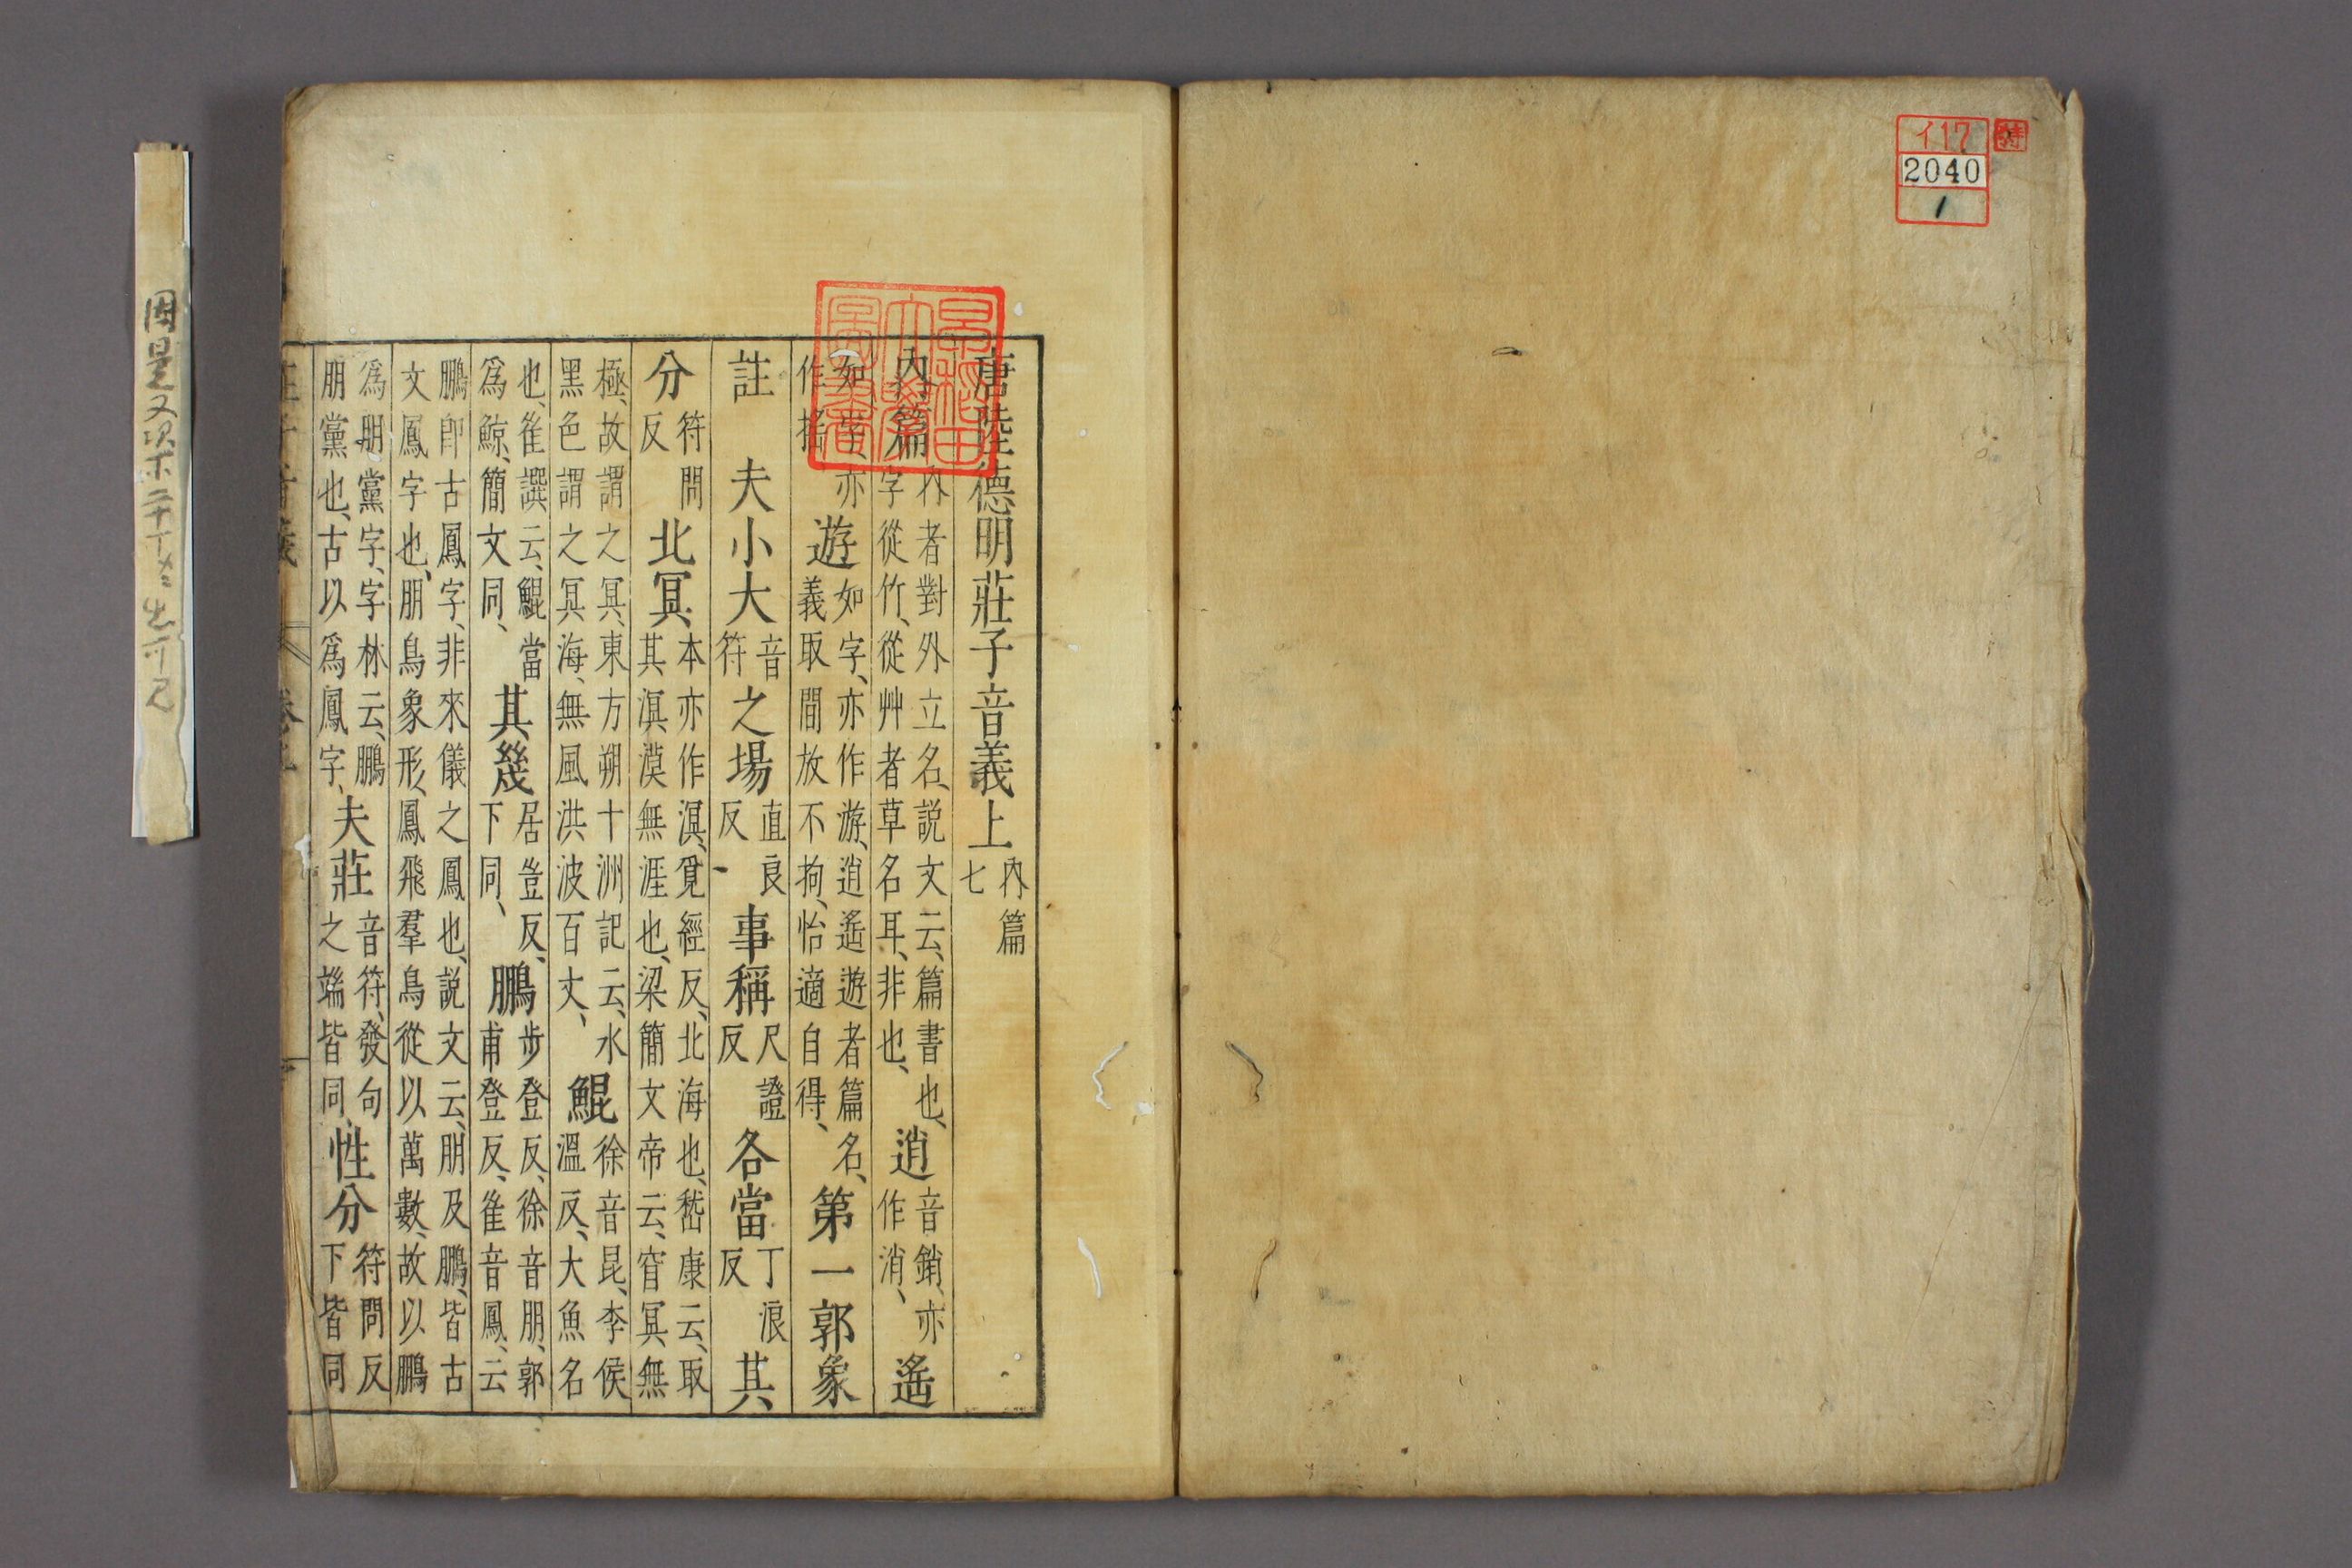 イ17
特
2040
1
早稲田大學圖書
唐陸德明莊子音義上內篇七
內篇內者對外立名、説文云、篇書也、字從竹、從艸者草名耳、非也、逍音銷、亦作消、遙
如字、亦作搖遊如字、亦作游、逍遙遊者篇名、義取間放不拘、怡適自得、第一郭象
註夫小大音符之場直良反事稱尺證反各當丁浪反其
分符問反北冥本亦作溟、覓經反、北海也、嵇康云、取其溟漠無涯也、梁簡文帝云、窅冥無
極、故謂之冥、東方朔十洲記云、水黑色謂之冥海、無風洪波百丈、鯤徐音昆、李侯溫反、大魚名
也、崔譔云、鯤當爲鯨、簡文同、其幾居豈反、下同、鵬步登反、徐音朋、郭甫登反、崔音鳳、云
鵬卽古鳳字、非來儀之鳳也、説文云、朋及鵬、皆古文鳳字也、朋鳥象形、鳳飛羣鳥從以萬數、故以鵬
爲朋黨字、字林云、鵬朋黨也、古以爲鳳字、夫莊音符、發句之端皆同、性分符問反下皆同